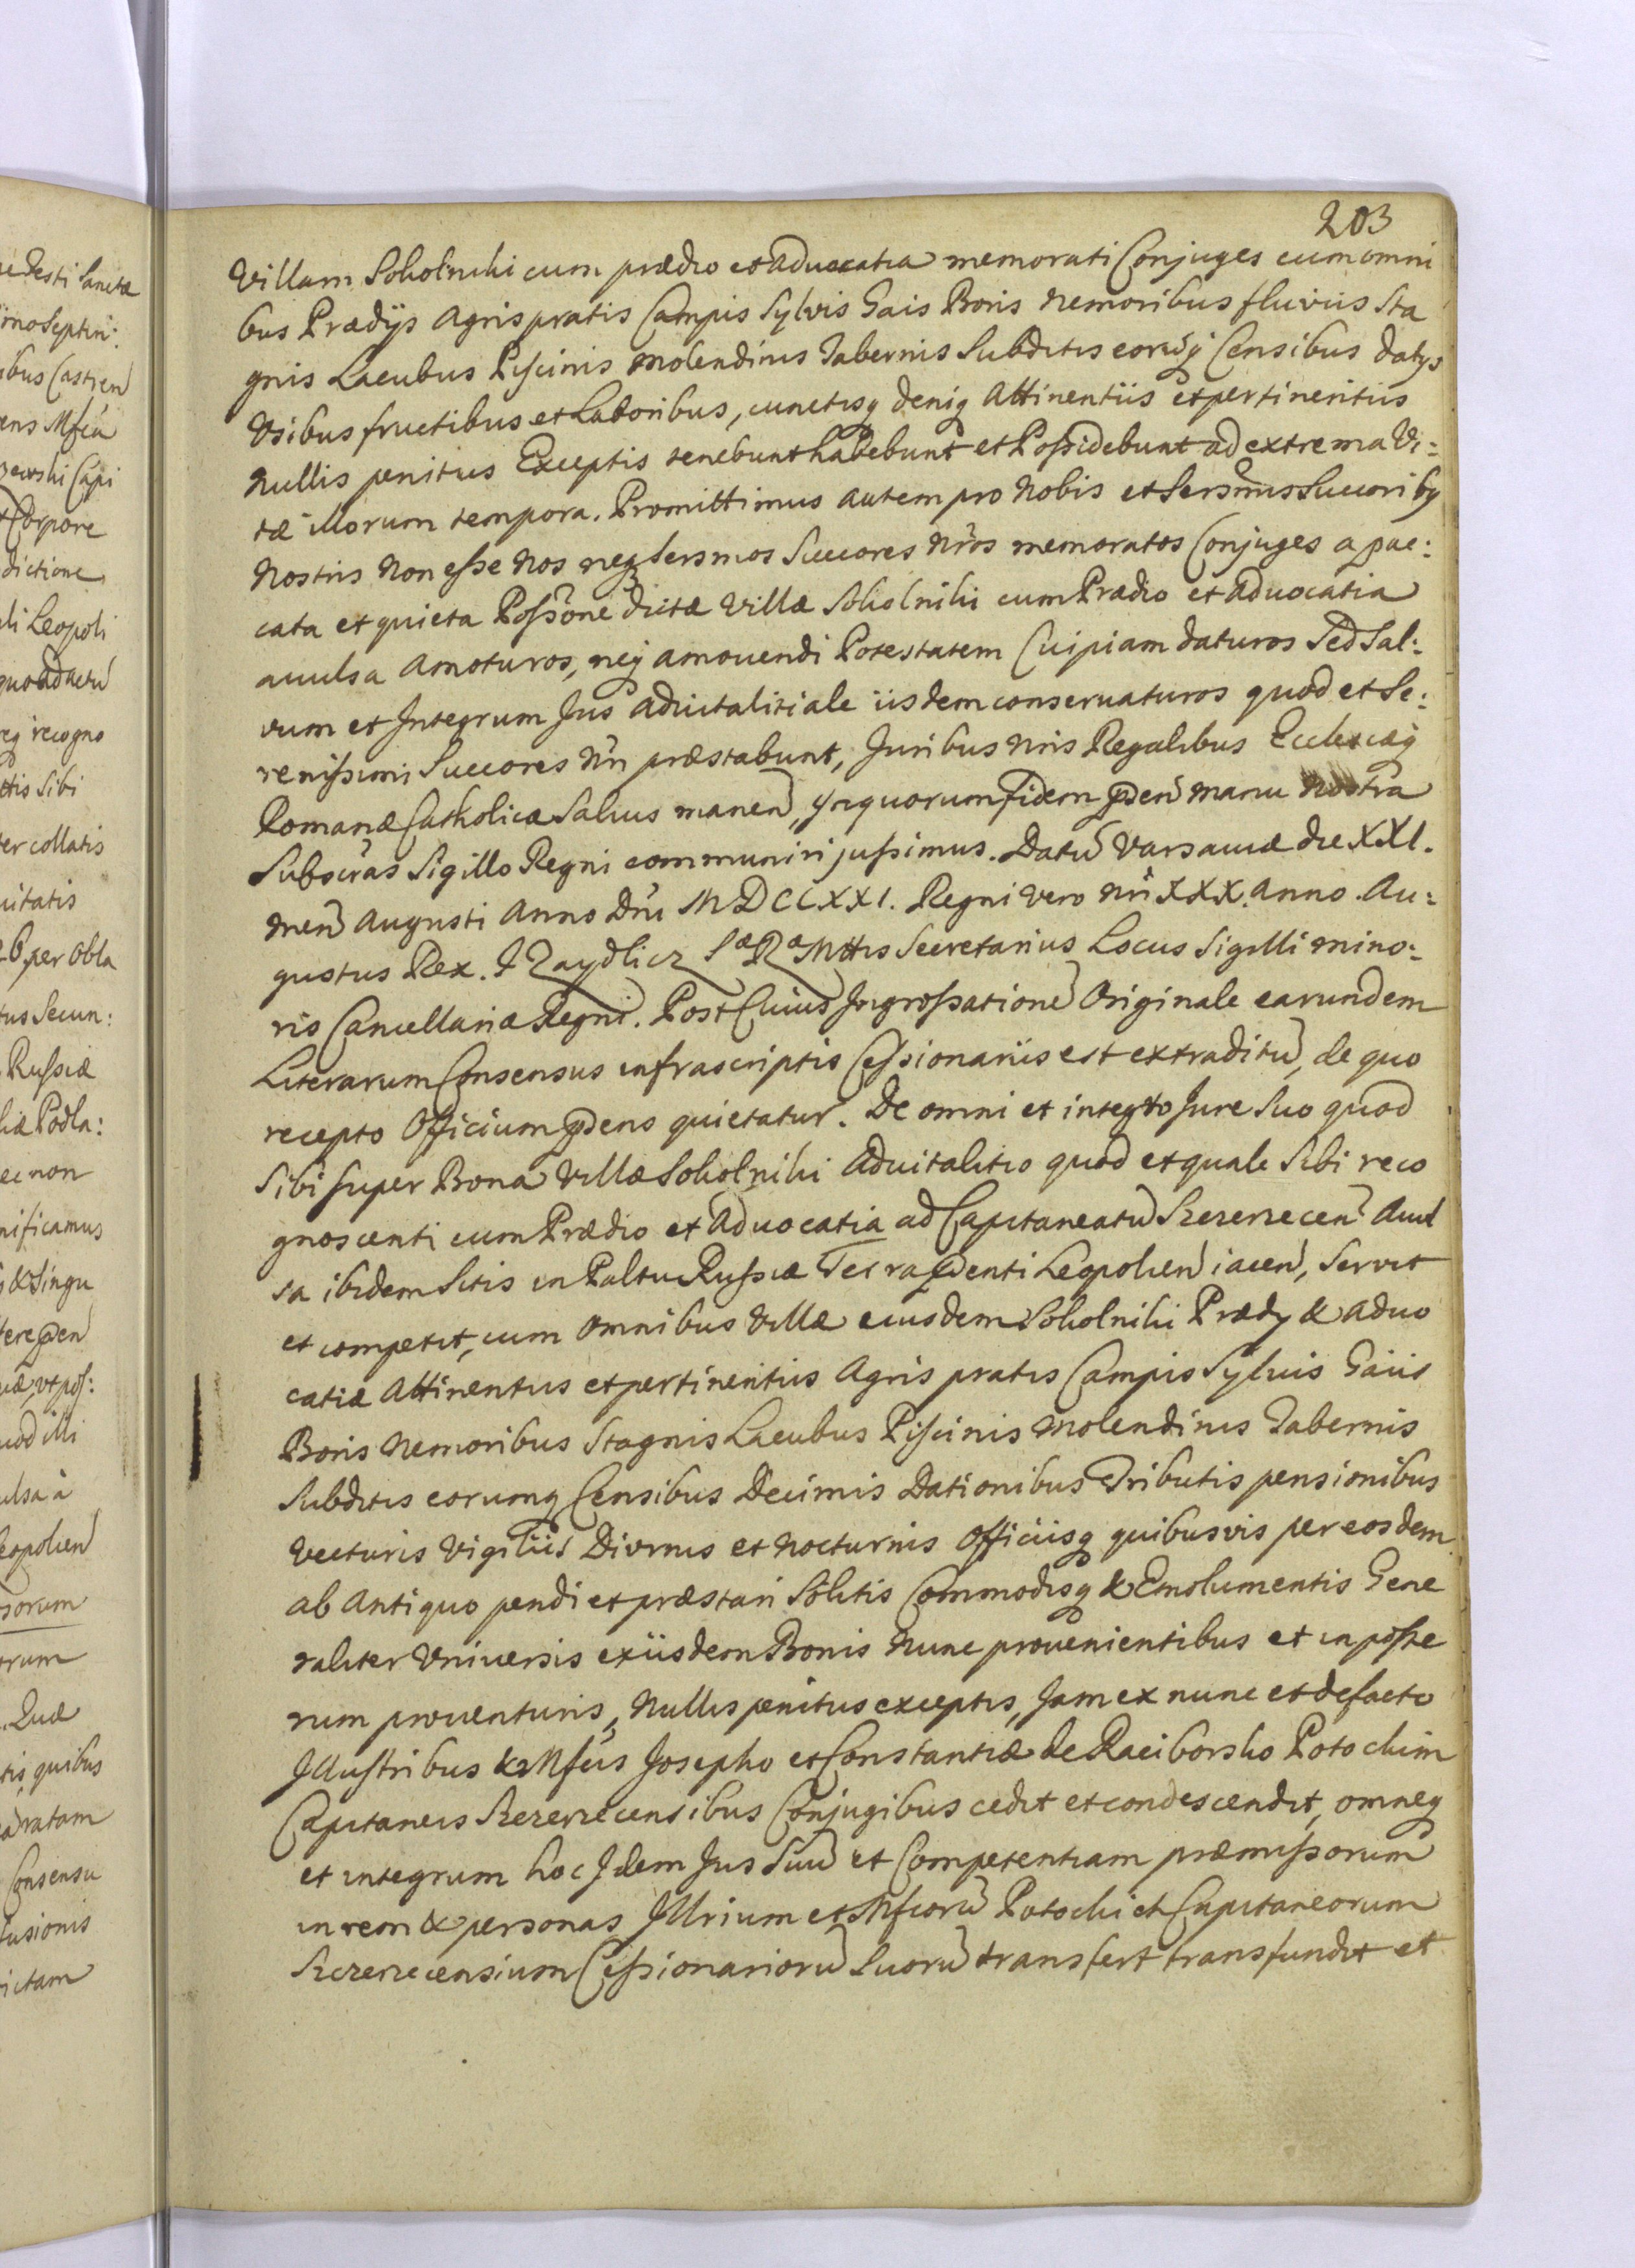 203
Villam Sokolniki cum prædio et aduocatia memorati Conjuges cum omni
bus Prædijs Agris pratis Campis Sylvis Gais Boris Nemoribus fluviis Sta
gnis Lacubus Piscinis Molendinis Tabernis Subditis eorūq Censibus datijs
Vsibus fructibus et Laboribus, cunctisq deniq Attinentiis et pertinentiis
Nullis penitus Exceptis tenebunt habebunt et Possidebunt ad extrema Vi:
tæ Illorum tempora. Promittimus autem pro Nobis et Sersmis Succorib9
Nostris Non esse Nos neq Sersmos Succores Nros memoratos Conjuges a pac:
cata et quieta Possone dictæ Villæ Sokolniki cum Prædio et aduocatia
auulsa Amoturos, neq amouendi Potestatem Cuipiam daturos Sed Sal:
vum et Integrum Jus aduitalitiale iisdem conservaturos quod et Se:
renissimi Succores Nri præstabunt, Juribus nris Regalibus Ecclesiæq
Romanæ Catholicæ Salvis manen, In quorum fidem pden manu Nostra
Subscras Sigillo Regni communiri jussimus. Datū Varsaviæ die XXI.
men Augusti Anno Dni MDCCXXI. Regni Vero nri XXX Anno. Au:
gustus Rex. J Zaydlicz Sæ Ræ Mttis Secretarius Locus Sigilli mino:
ris Cancellariæ Regni. Post Cuius Ingrossationē Originale earundem
Literarum Consensus infrascriptis Cessionariis est extraditū, de quo
recepto Officium pdens quietatur. De omni et integro Jure Suo quod
Sibi super Bona Villæ Sokolniki Aduitalitio quod et quale Sibi reco
gnoscenti cum Prædio et Aduocatia ad Capitaneatū Szczerzecen Auul
sa ibidem Sitis in Paltu Russiæ Terra pdenti Leopolien iacen, Servit
et competit, cum Omnibus Villæ eiusdem Sokolniki Prædij & aduo
catiæ Attinentiis et pertinentiis Agris pratis Campis Syluis Gaiis
Boris Nemoribus Stagnis Lacubus Piscinis Molendinis Tabernis
Subditis eorumq Censibus Decimis Dationibus Tributis pensionibus
Vecturis Vigiliis Diurnis et Nocturnis Officiisq quibusvis per eosdem
ab Antiquo pendi et præstari Solitis Commodisq & Emolumentis Gene
raliter Vniuersis ex iisdem Bonis Nunc prouenientibus et in poste
rum prouenturis, Nullis penitus exceptis, Jam ex nunc et de facto
Jllustribus & Mfcis Josepho et Constantiæ de Raciborsko Potockim
Capitaneis Szczerzecensibus Conjugibus cedit et condescendit, omneq
et integrum hoc Jdem Jus Suū et Competentiam præmissorum
in rem & personas Jllrium et Mfcorū Potocki et Capitaneorum
Szczerzecensium Cessionariorū Suorū transfert transfundit et